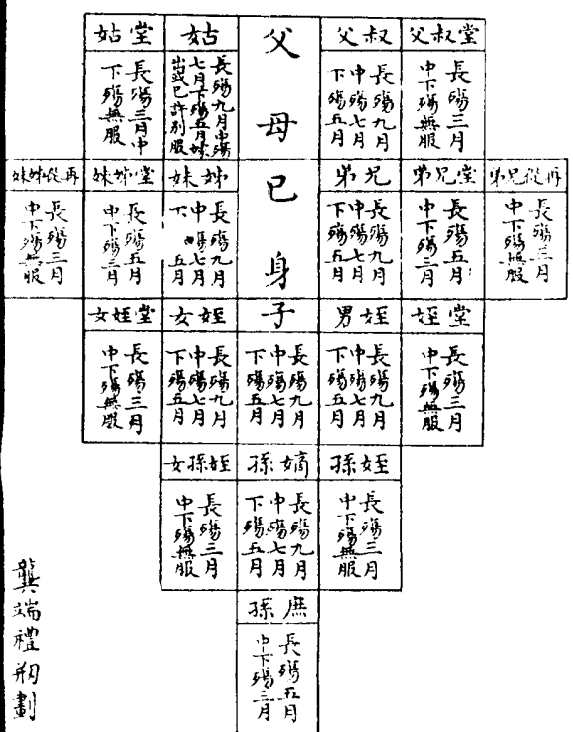 堂叔父
長殤三月
中下殤無服
叔父
長殤九月
中殤七月
下殤五月
父母
姑
長殤九月中殤
七月下殤五月妹
出或已許別服
堂姑
長殤三月中
下殤無服
再從兄弟
長殤三月
中下殤無服
堂兄弟
長殤五月
中下殤三月
兄弟
長殤九月
中殤七月
下殤五月
己身
姊妹
長殤九月
中殤七月
下 五月
堂姊妹
長殤五月
中下殤三月
再從姊妹
長殤三月
中下殤無服
堂姪
長殤三月
中下殤無服
姪男
長殤九月
中殤七月
下殤五月
子
長殤九月
中殤七月
下殤五月
姪女
長殤九月
中殤七月
下殤五月
堂姪女
長殤三月
中下殤無服
姪孫
長殤三月
中下殤無服
嫡孫
長殤九月
中殤七月
下殤五月
姪孫女
長殤三月
中下殤無服
庶孫
長殤五月
中下殤三月
龔端禮刱劃